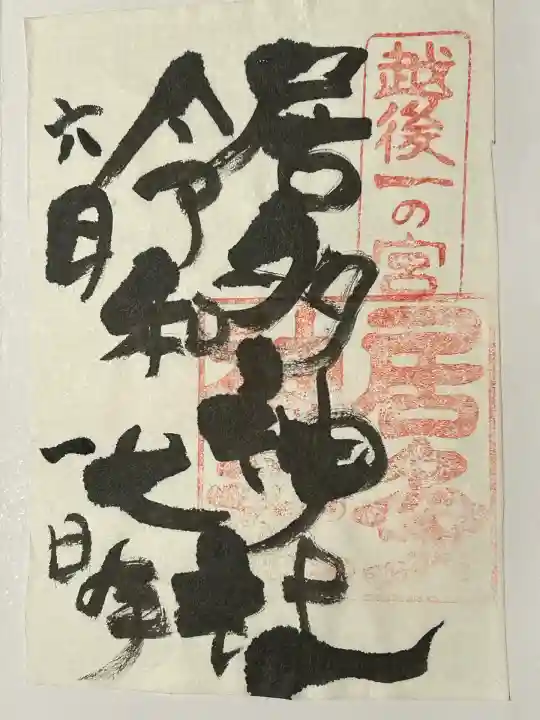 越後一の宮
居多神社
令和七年
六月一日